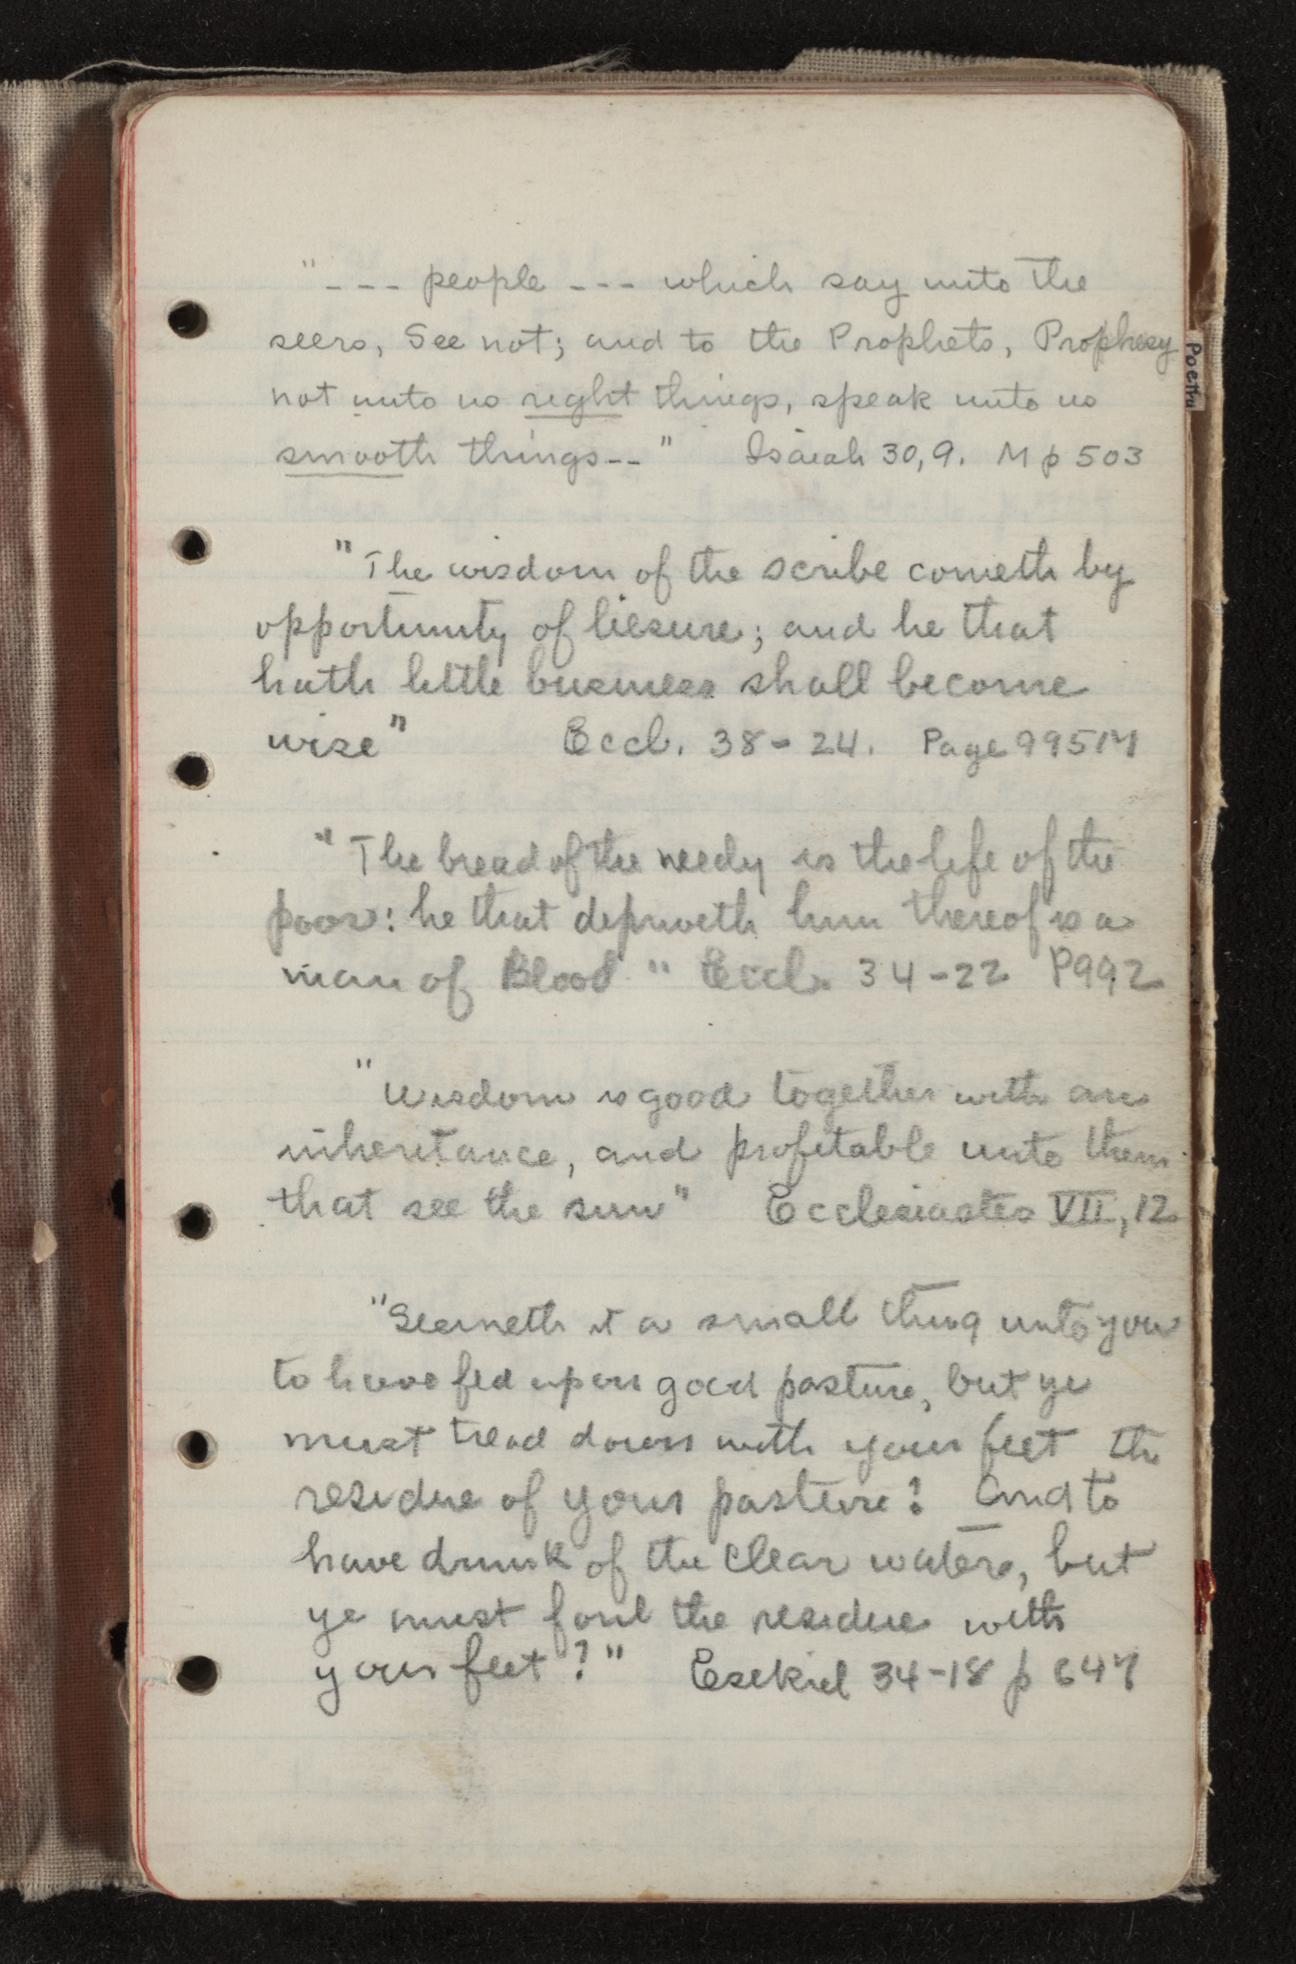 " - - - people - - - which say unto the
seers, See not; and to the Prophets, Prophesy
not unto us right things, speak unto us
smooth things -- " Isaiah 30, 9. M p 503
"The wisdom of the scribe cometh by
opportunity of liesure; and he that
hath little business shall become
wise" Eccl. 38-24. Page 995 M
"The bread of the needy is the life of the
poor: he that depriveth him thereof is a
man of Blood " Eccl. 34-22 P992
"Wisdom is good together with an
inheritance, and profitable unto them
that see the sun" Ecclesiastes VII, 12
"Seemeth it a small thing unto you
to have fed upon good pasture, but ye
must tread down with your feet the
residue of your pasture? And to
have drunk of the clear waters, but
ye must foul the residue with
your feet?" Ezekiel 34-18 p 647
Poetry